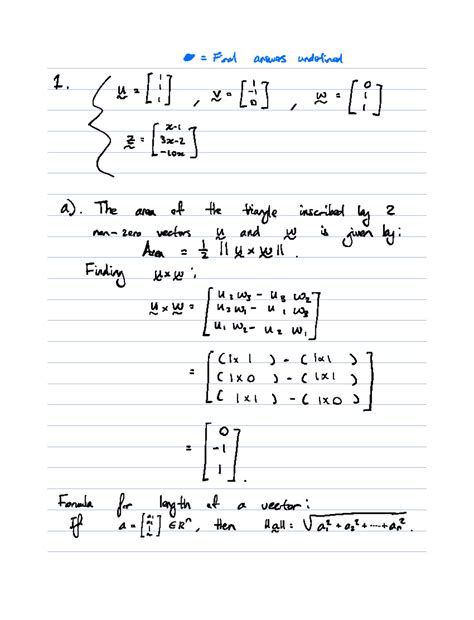 = Final answers underlined
1. u = [1 1 1], v = [1 -1 0], w = [0 1 1]
z = [x-1 3x-2 -10x]
a). The area of the triangle inscribed by 2
non-zero vectors u and w is given by:
Area = 1/2 ||u × w||.
Finding u×w:
u × w = [u₂w₃ - u₃w₂
u₃w₁ - u₁w₃
u₁w₂ - u₂w₁]
= [(1×1) - (1×1)
(1×0) - (1×1)
(1×1) - (1×0)]
= [0 -1 1].
Formula for length of a vector:
If a = [a₁ a₂ ⋮] ∈ Rⁿ, then ||a|| = √a₁² + a₂² + ... + aₙ².